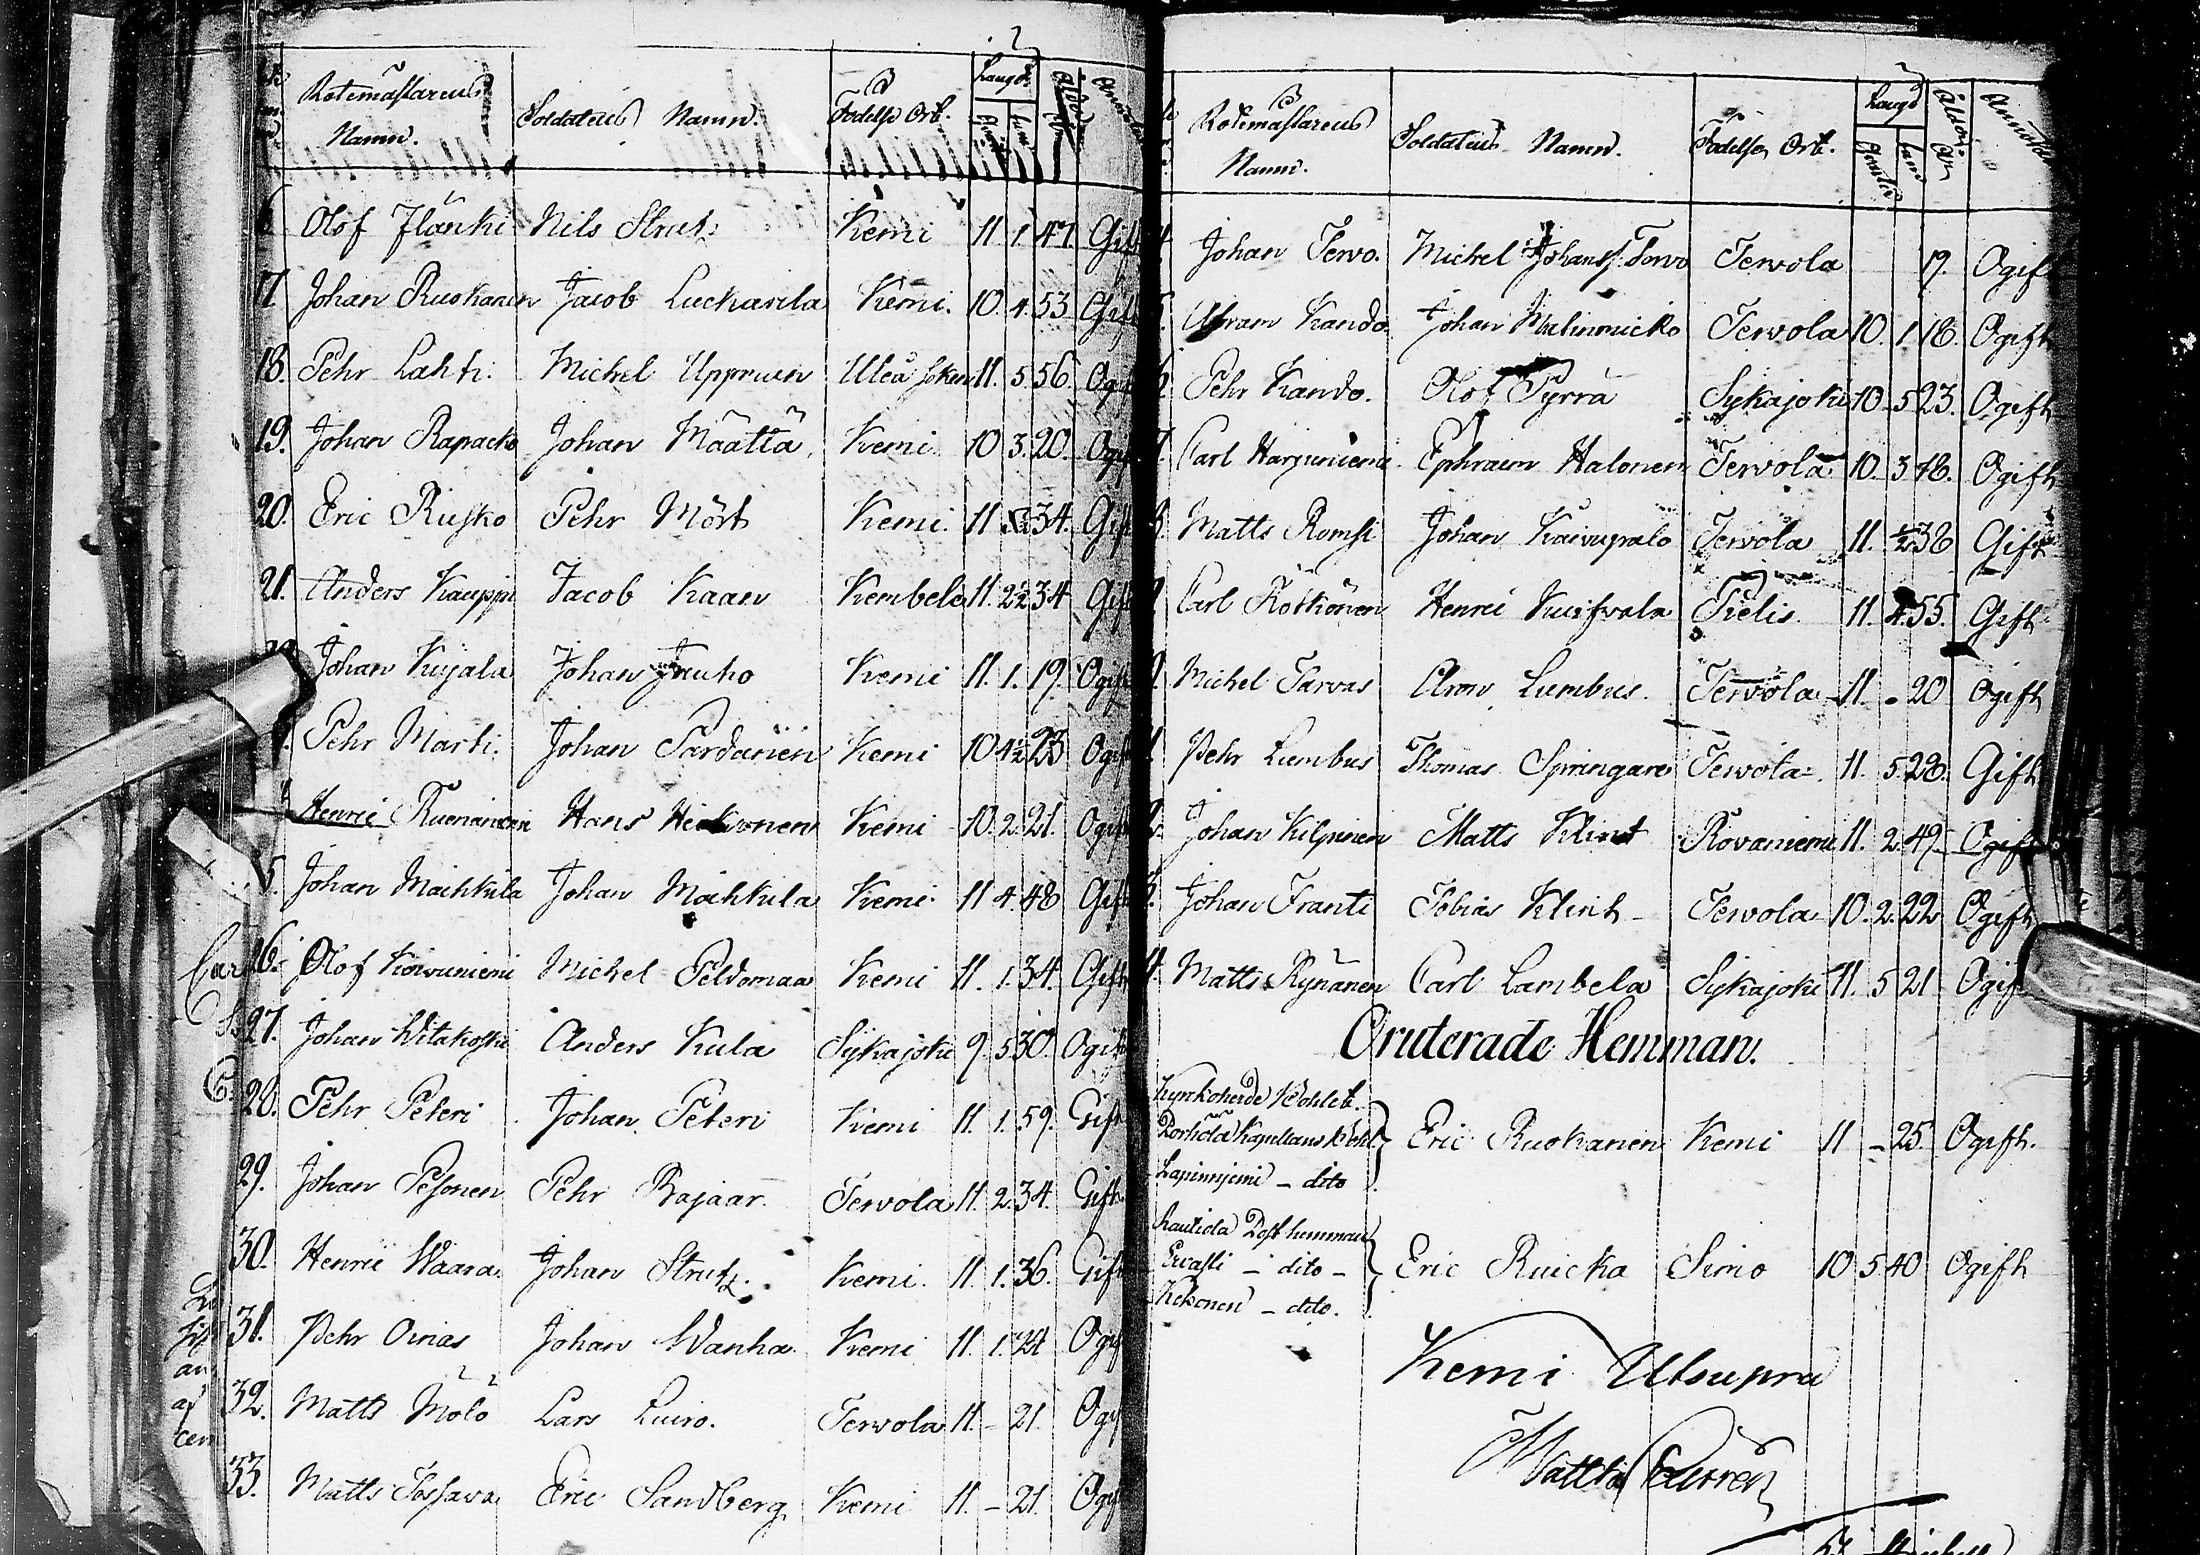 Rotemästarens Namn. Soldatens Namn. Födelse Ort. Längd Ålder
Olof Jlänki Nils Strutz Kemi 11 1 47 Gift
17 Johan Ruokanen Jacob Luckarila Kemi. 10. 4. 53 Gift
18. Pehr Lahti. Michel Uppman Uleå soken 11. 5 56. Ogif
19. Johan Rapacko Johan Määttä Kemi. 10 3. 20. Ogif
20. Eric Rusko Pehr Mört Kemi. 11 34. Gif
21. Anders Kauppi Jacob Kaan Kembele 11. 2½ 34 Gift
Johan Kujala Johan Juuho Kemi 11. 1. 19. Ogift
Pehr Marti. Johan Pardanen Kemi 10 4½ 23 Ogif
Henric Hans Kemi 10. 2. 21. Ogif
5. Johan Maihkula Johan Maihkula Kemi. 11 4. 48 Gift
26. Olof Koivuniemi Michel Peldomaa Kemi 11. 1. 34. Gift
27. Johan Witakoski Anders Kula Sijkajoki 9. 5 30. Ogift
28. Pehr Peteri Johan Peteri Kemi 11. 1. 59. Gift
29. Johan Pesonen Pehr Bajaar. Tervola 11. 2. 34. Gift
30. Henric Waara Johan Strutz. Kemi. 11. 1. 36. Gift
31. Pehr Oinas Johan Wanha. Kemi 11. 1. 24 Ogif
32. Matts Mölö Lars Luiro. Tervola 11. – 21. Ogif
33. Matts Tossava Eric Sandberg Kemi 11. – 21. Ogif
Rotemästarens Namn. Soldatens Namn. Födelse Ort. Längd Ålder År
Johan Tervo. Michel Johanss. Torvo Tervola 19. Ogif
Abram Kando Johan Malinmicko Tervola 10. 1. 18. Ogift
Pehr Kando. Olof Pyrrä Sijkajoki 10 5 23. Ogift
Carl Harjuniemi Ephraim Halonen Tervola 10. 3 48. Ogift
Matts Romsi Johan Kaivupalo Tervola 11. ½ 38 Gift
Carl Kötkönen Henric Kuifvala Pielis. 11. 4. 55. Gift
Michel Tarvas Aron Lumbus. Tervola 11. – 20 Ogift
Pehr Lumbus Thomas Springare Tervola 11. 5. 28. Gift
Johan Kilpinen Matts Klint Rovaniemi 11. 2. 49. Ogift
Johan Franti Tobias Klint – Tervola 10. 2. 22 Ogift
Matts Rynänen Carl Lambela Sijkajoki 11. 5 21 Ogif
Oruterade Hemman.
Kyrkoherde Bohlet.
Porkola Kapellans Bohl. Eric Ruokanen Kemi 11 – 25. Ogift.
Lapinnjemi – dito
Rautiola Post hemman
Ervasti – dito – Eric Ruicka Simo 10 5 40 Ogift
Kekonen – dito.
Kemi Utsupra